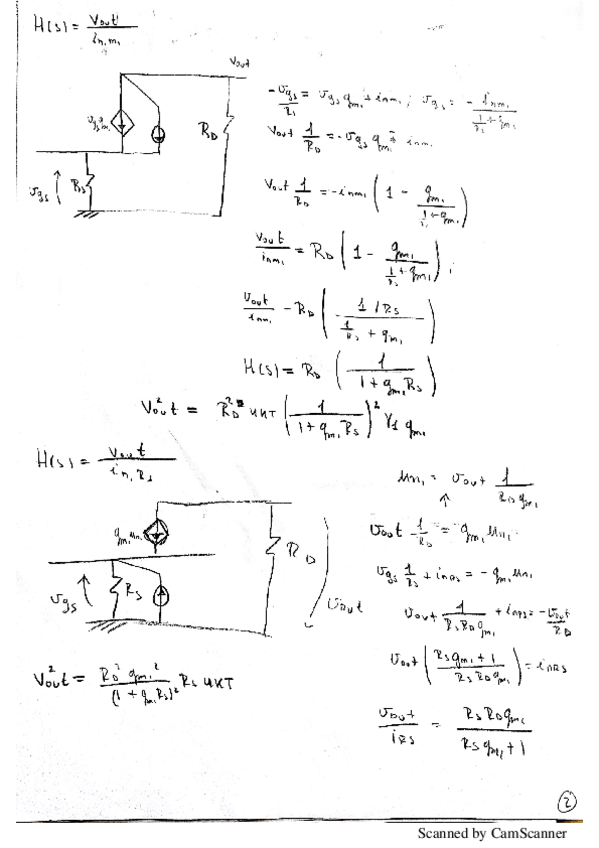 H(s) = Vout / in,m1
Vout
vgs gm1
RD
vgs
RS
-vgs/Rs = vgs gm1 + inm1 ; vgs = - inm1 / (1/Rs + gm1)
Vout 1/RD = -vgs gm1 - inm1
Vout 1/RD = -inm1 (1 - gm1 / (1/Rs + gm1))
Vout / inm1 = RD (1 - gm1 / (1/Rs + gm1)) ;
Vout / inm1 - RD (- 1/RS / (1/Rs + gm1))
H(s) = RD (1 / (1 + gm1 RS))
V²out = RD² 4KT (1 / (1 + gm1 RS))² γ1 gm1
H(s) = Vout / in,Rs
gm1
RD
vgs
RS
Vout
= Vout 1 / (RD gm1)
Vout 1/RD = gm1
vgs 1/Rs + inRS = - gm1
Vout 1 / (RS RD gm1) + inRS = - Vout / RD
Vout ((RS gm1 + 1) / (RS RD gm1)) = inRS
Vout / iRS = RS RD gm1 / (RS gm1 + 1)
V²out = RD² gm1² / (1 + gm1 RS)² RS 4KT
2
Scanned by CamScanner